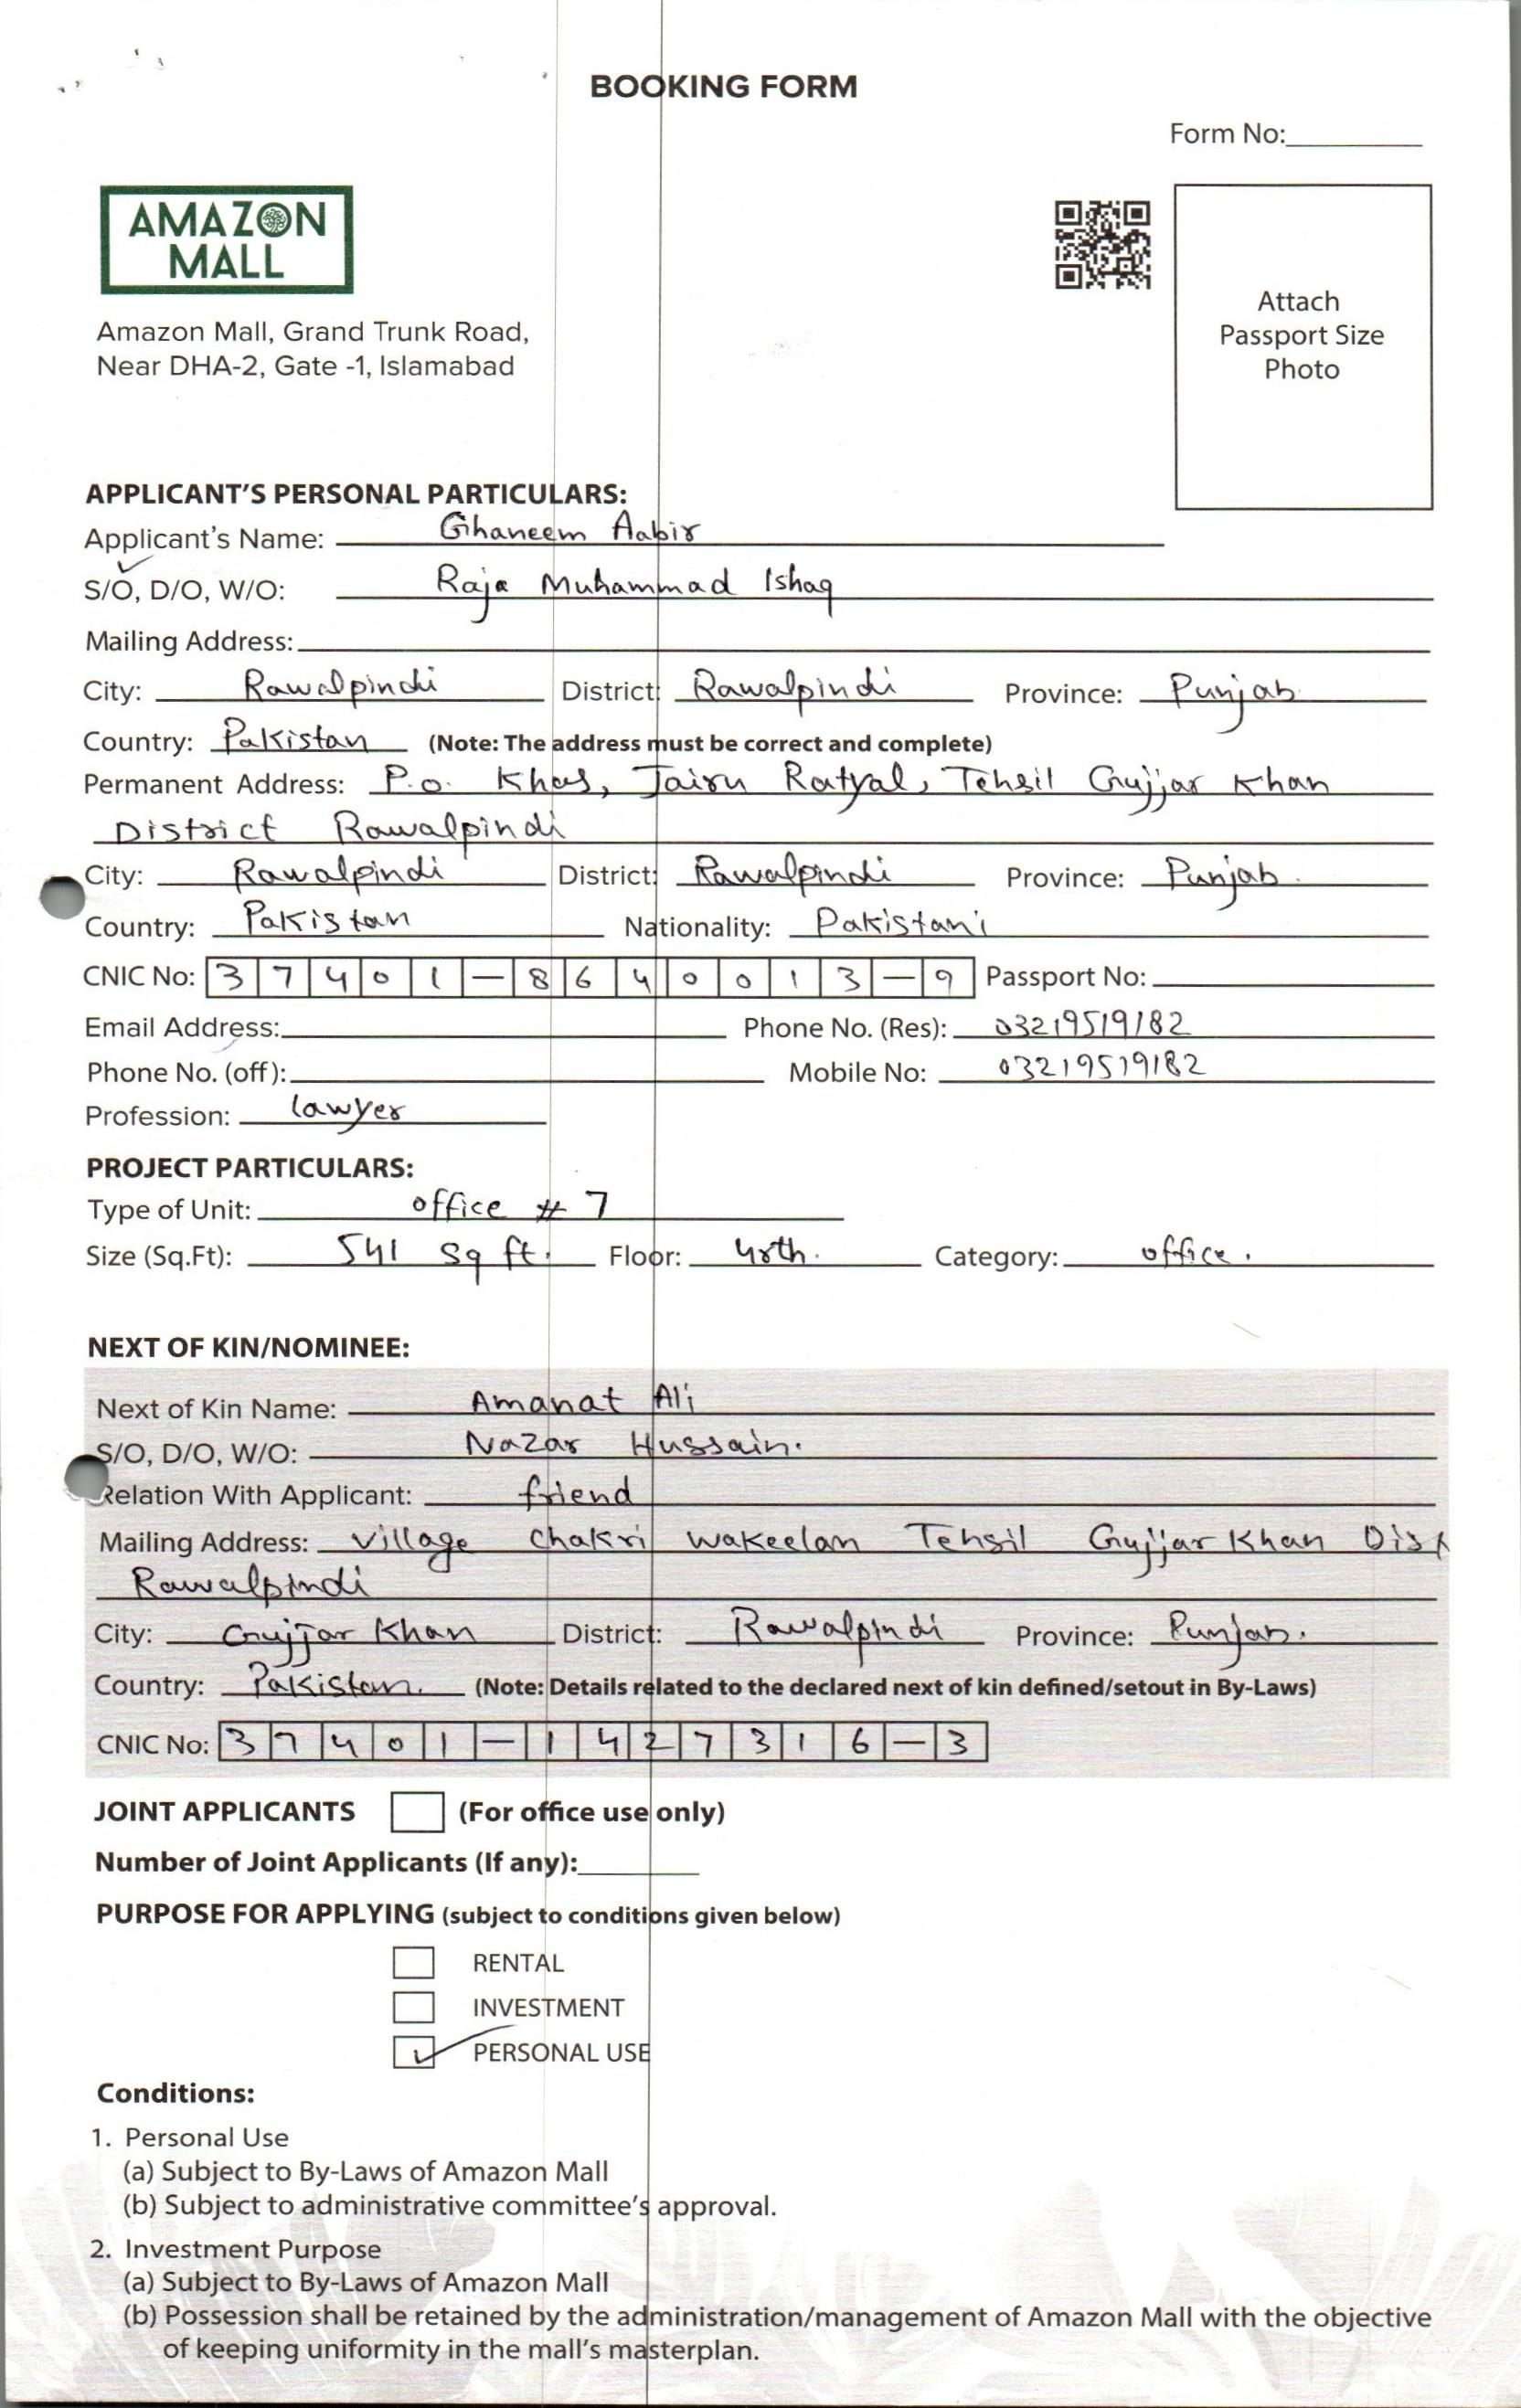 BOOKING FORM
Form No:
AMAZON
MALL
Attach
Passport Size
Photo
Amazon Mall, Grand Trunk Road,
Near DHA-2, Gate -1, Islamabad
APPLICANT'S PERSONAL PARTICULARS:
Applicant's Name: Ghaneem Aabir
S/O, D/O, W/O: Raja Muhammad Ishaq
Mailing Address:
City: Rawalpindi District: Rawalpindi Province: Punjab
Country: Pakistan (Note: The address must be correct and complete)
Permanent Address: P.o. Khas, Jairu Ratyal, Tehsil Gujjar Khan
District Rawalpindi
City: Rawalpindi District: Rawalpindi Province: Punjab.
Country: Pakistan Nationality: Pakistani
CNIC No: 37401-8640013-9 Passport No:
Email Address: Phone No. (Res): 03219519182
Phone No. (off): Mobile No: 03219519182
Profession: lawyer
PROJECT PARTICULARS:
Type of Unit: office # 7
Size (Sq.Ft): 541 Sq ft. Floor: 4rth. Category: office.
NEXT OF KIN/NOMINEE:
Next of Kin Name: Amanat Ali
S/O, D/O, W/O: Nazar Hussain.
Relation With Applicant: friend
Mailing Address: Village Chakri Wakeelan Tehsil Gujjar Khan Dist
Rawalpindi
City: Gujjar Khan District: Rawalpindi Province: Punjab.
Country: Pakistan. (Note: Details related to the declared next of kin defined/setout in By-Laws)
CNIC No: 37401-1427316-3
JOINT APPLICANTS (For office use only)
Number of Joint Applicants (If any):
PURPOSE FOR APPLYING (subject to conditions given below)
RENTAL
INVESTMENT
PERSONAL USE
Conditions:
1. Personal Use
(a) Subject to By-Laws of Amazon Mall
(b) Subject to administrative committee's approval.
2. Investment Purpose
(a) Subject to By-Laws of Amazon Mall
(b) Possession shall be retained by the administration/management of Amazon Mall with the objective
of keeping uniformity in the mall's masterplan.